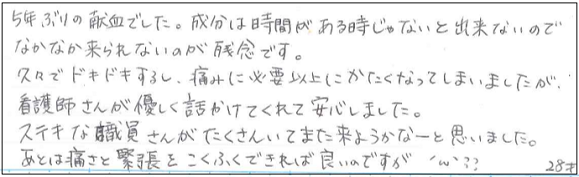 5年ぶりの献血でした。成分は時間がある時じゃないと出来ないので
なかなか来られないのが残念です。
久々でドキドキするし、痛みに必要以上にかたくなってしまいましたが、
看護師さんが優しく話かけてくれて安心しました。
ステキな職員さんがたくさんいてまた来ようかなーと思いました。
あとは痛さと緊張をこくふくできれば良いのですが ´ω`??
28才